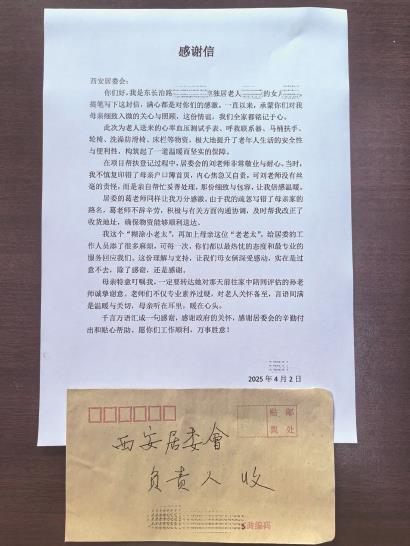 感谢信
西安居委会:
你们好,我是东长治路 独居老人 的女儿
提笔写下这封信,满心都是对你们的感激。一直以来,承蒙你们对我
母亲细致入微的关心与照顾,这份情谊,我们全家都铭记于心。
此次为老人送来的心率血压测试手表、呼我联系器、马桶扶手、
轮椅、洗澡防滑椅、床栏等物资,极大地提升了老年人生活的安全性
与便利性,构筑起了一道温暖而坚实的保障。
在项目帮扶登记过程中,居委会的刘老师非常敬业与耐心。当时,我
不慎复印错了母亲户口簿首页,内心焦急又自责,可刘老师没有丝
毫的责怪,而是亲自帮忙妥善处理,那份细致与包容,让我倍感温暖。
居委的葛老师同样让我万分感激。由于我的疏忽写错了母亲家的
路名,葛老师不辞辛劳,积极与有关方面沟通协调,及时帮我改正了
收货地址,确保物资能够顺利送达。
我这个“糊涂小老太”,再加上母亲这位“老老太”,给居委的工
作人员添了很多麻烦,可每一次,你们都以最热忱的态度和最专业的
服务回应我们。这份理解与支持,让我们母女俩深受感动,实在是过
意不去,除了感谢,还是感谢。
母亲特意叮嘱我,一定要转达她对那天前往家中陪同评估的孙老
师诚挚谢意。老师们不仅专业素养过硬,对老人关怀备至,言语间满
是温暖与关切,母亲听在耳里,暖在心头。
千言万语汇成一句感谢,感谢政府的关怀,感谢居委会的辛勤付
出和贴心帮助。愿你们工作顺利,万事胜意!
2025年4月2日
贴 邮
票 处
西安居委會
负责人 收
邮政编码